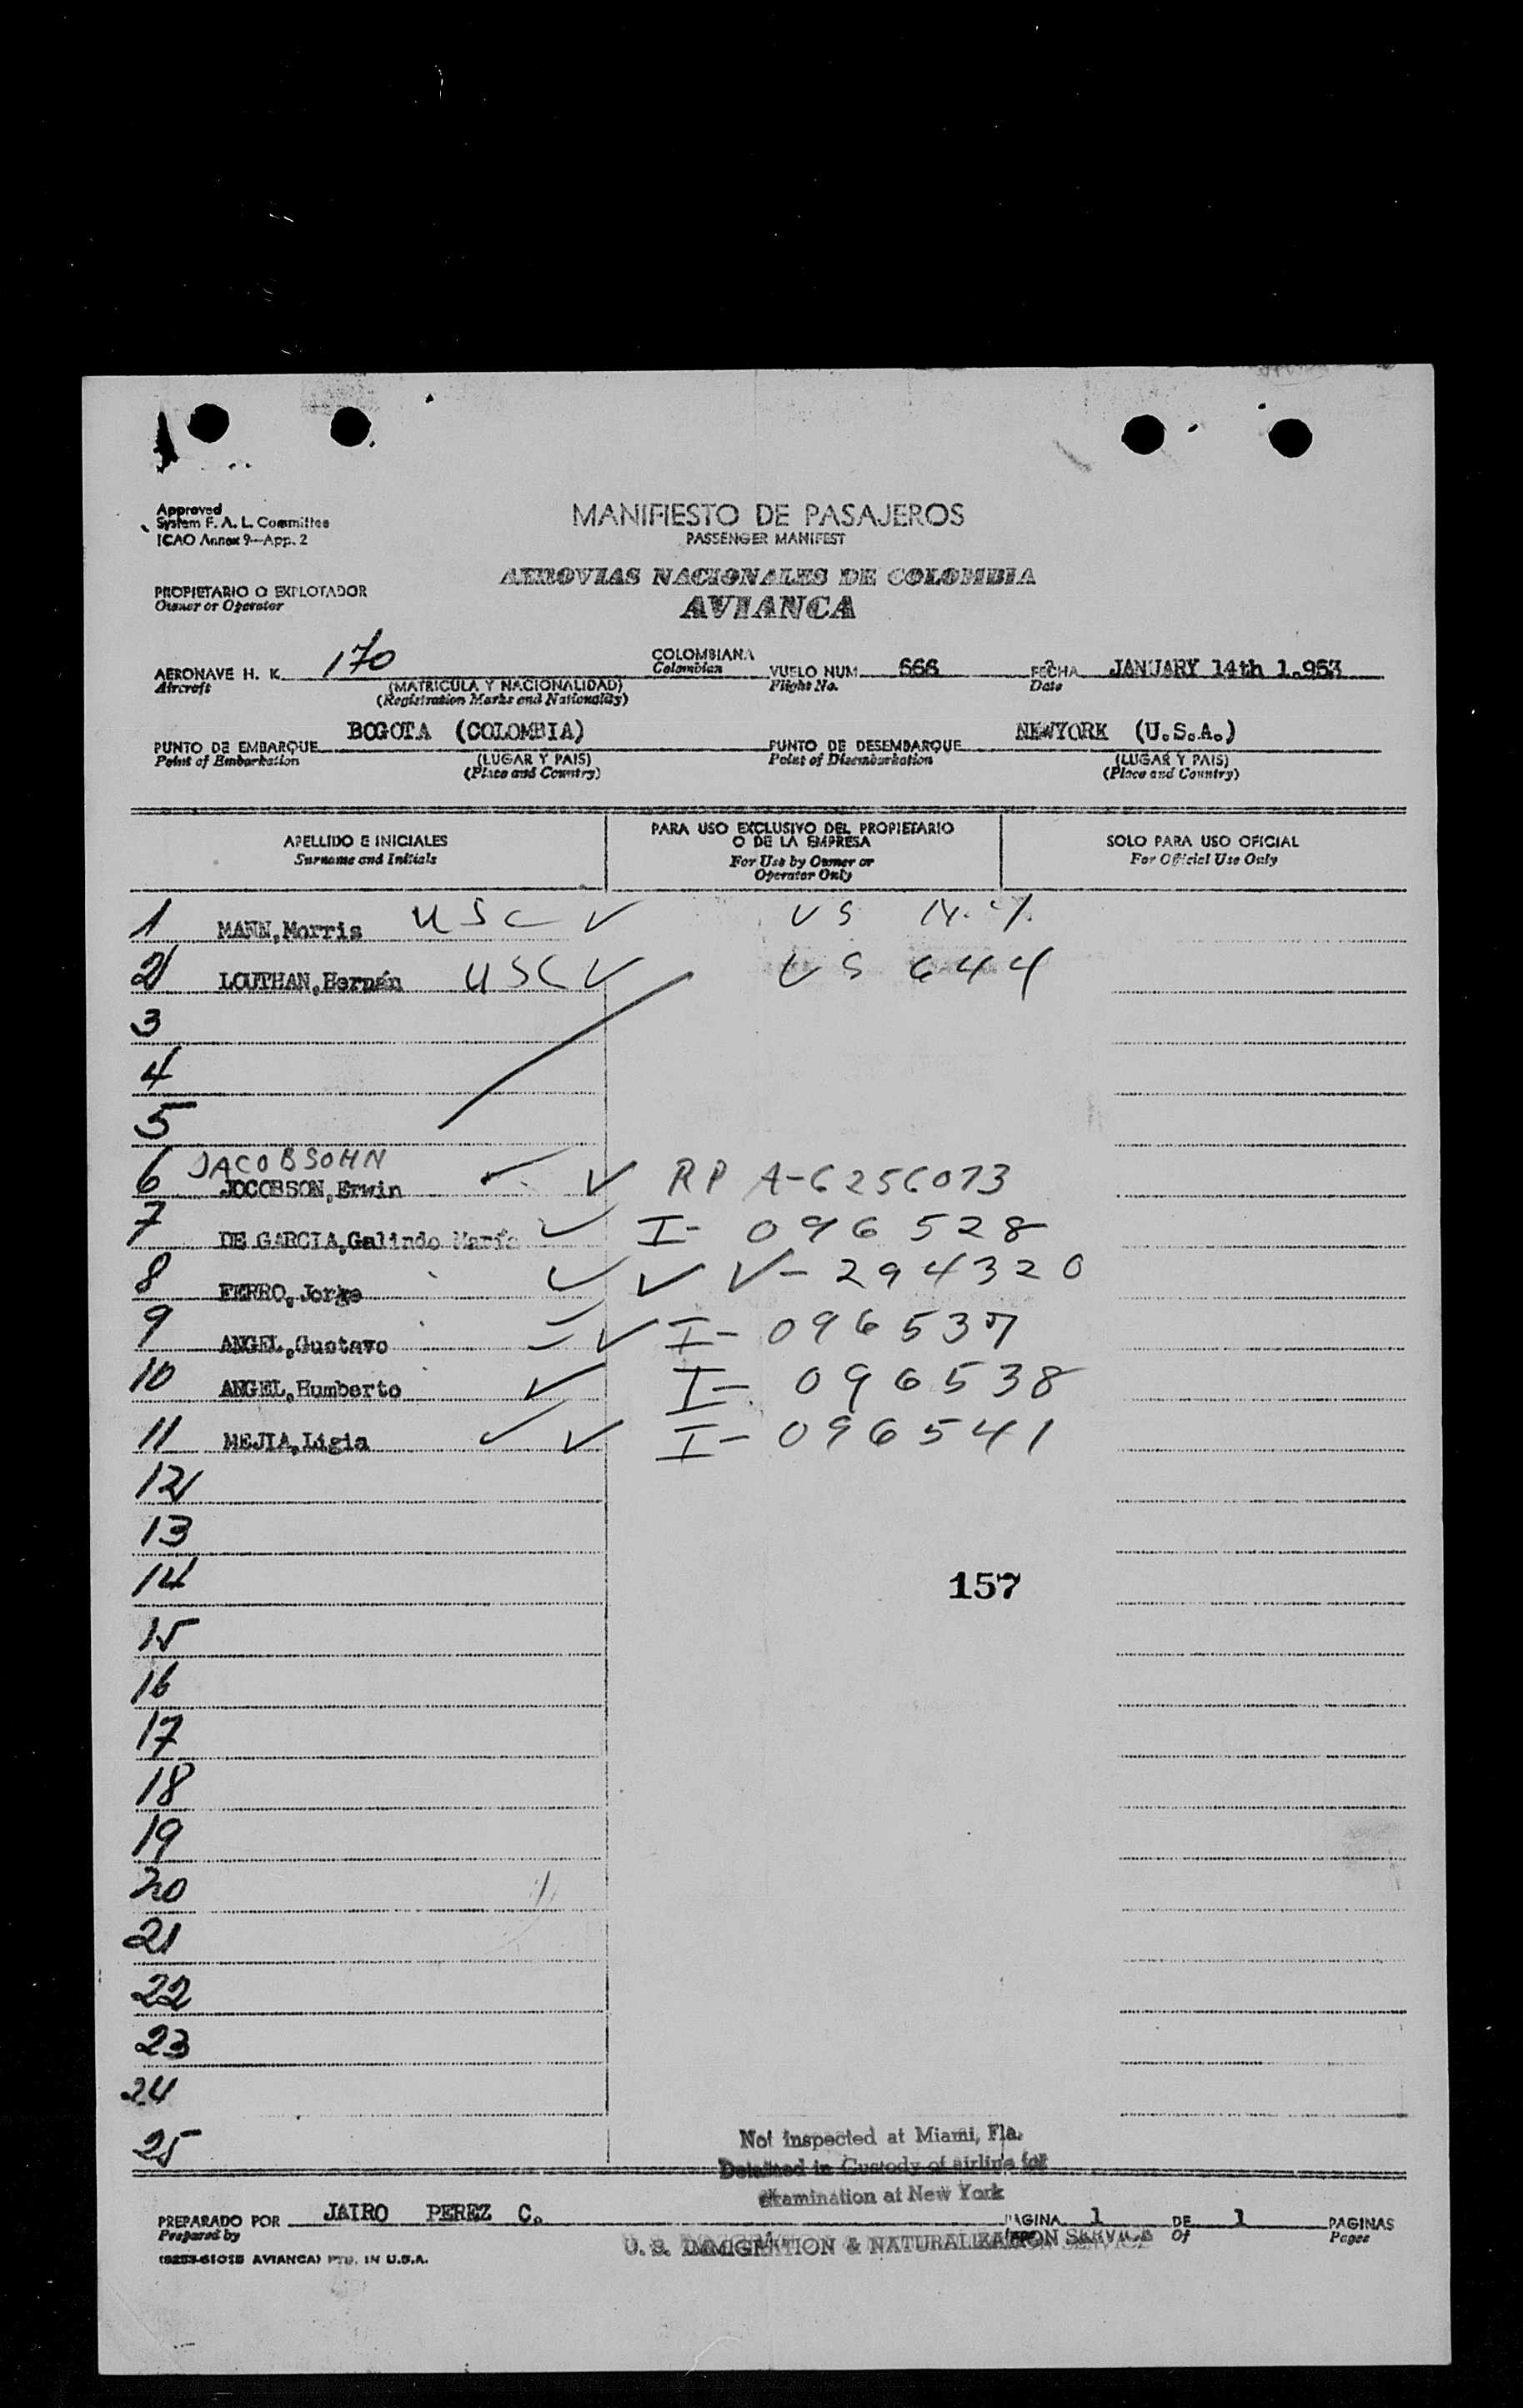 Approved
System F. A. L. Committee
ICAO Annex 9—App. 2
MANIFIESTO DE PASAJEROS
PASSENGER MANIFEST
PROPIETARIO O EXPLOTADOR
Owner or Operator
AEROVIAS NACIONALES DE COLOMBIA
AVIANCA
AERONAVE H. K. 170 COLOMBIANA VUELO NUM. 666 FECHA JANUARY 14th 1.953
Aircraft (MATRICULA Y NACIONALIDAD) Colombian Flight No. Date
(Registration Marks and Nationality)
PUNTO DE EMBARQUE BOGOTA (COLOMBIA) PUNTO DE DESEMBARQUE NEWYORK (U.S.A.)
Point of Embarkation (LUGAR Y PAIS) Point of Disembarkation (LUGAR Y PAIS)
(Place and Country) (Place and Country)
APELLIDO E INICIALES PARA USO EXCLUSIVO DEL PROPIETARIO O DE LA EMPRESA SOLO PARA USO OFICIAL
Surname and Initials For Use by Owner or Operator Only For Official Use Only
1 MANN,Morris USC ✓ US N.Y.
2 LOUTHAN,Hernán USC ✓ US 644
3
4
5
6 JACOBSOHN
JOCOBSON,Erwin ✓ ✓ RP A-6256073
7 DE GARCIA,Galindo María ✓ I- 096528
8 FERRO,Jorge ✓ ✓ V- 294320
9 ANGEL,Gustavo ✓ I- 096537
10 ANGEL,Humberto ✓ I- 096538
11 MEJIA,Ligia ✓ ✓ I- 096541
12
13
14 157
15
16
17
18
19
20
21
22
23
24
25
Not inspected at Miami, Fla.
Detained in Custody of airline for
examination at New York
U. S. IMMIGRATION & NATURALIZATION SERVICE
PREPARADO POR JAIRO PEREZ C. PAGINA 1 DE 1 PAGINAS
Prepared by Of Pages
(8253-61015 AVIANCA) PTD. IN U.S.A.